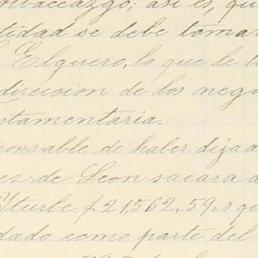 albaceazgo; así es, qu
tidad se debe tomar
Elguero, lo que le to
direccion de los nego
stamentaria.
ponsable de haber dejado
ez de Leon sacara d
Yturbe $21,562,59.s qu
dado como parte del